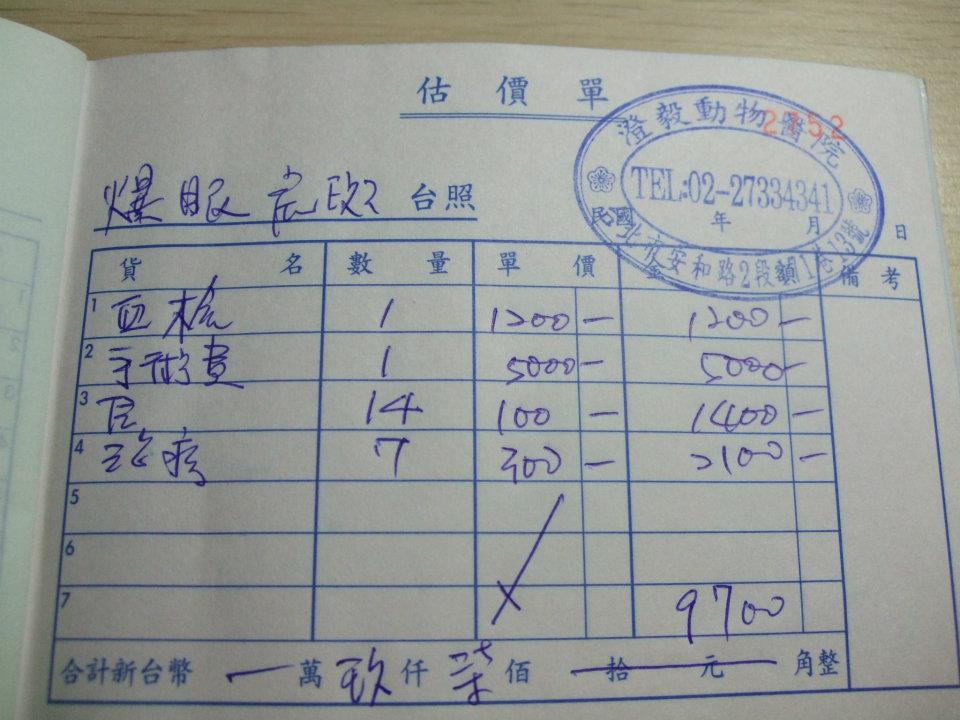 估價單
2152
澄毅動物醫院
TEL:02-27334341
北市安和路2段
爆眼 台照
民國 年 月 日
貨名 數量 單價 金額 備考
1 血檢 1 1200— 1200—
2 手術費 1 5000— 5000—
3 14 100— 1400—
4 治療 7 300— 2100—
5
6
7 9700
合計新台幣 — 萬 玖 仟 柒 佰 拾 元 角整